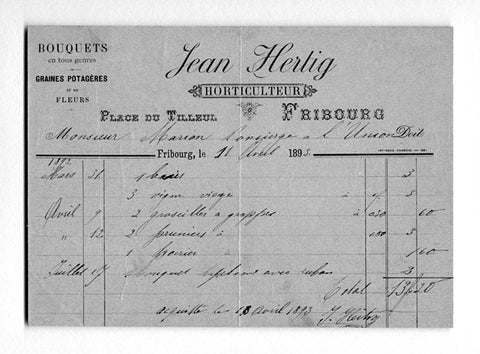 BOUQUETS
en tous genres
GRAINES POTAGÈRES
et de
FLEURS
Jean Hertig
HORTICULTEUR
PLACE DU TILLEUL FRIBOURG
Monsieur concierge à l'Union Doit
Fribourg, le Avril 189
1892
Mars 31 1 3
3 vigne vierge à 3
Avril 9 2 groseiller à grappes à 0.30 60
" 12 2 pruniers à 3
1 1 60
Juillet 17 Bouquet avec ruban 3
Total 13 20
acquitté le 18 Avril 1893 J. Hertig